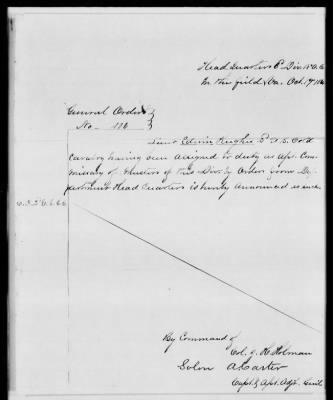 Head Quarters 3d Div. 18 A.C.
In the field Va. Oct. 17" 186
General Orders
No. 116
Lieut Edwin Hughes 5" U.S. Cold
Cavalry having been assigned to duty as Apt. Com-
missary of Musters of this Div. by Orders from De-
partment Head Quarters is hereby announced as such.
By Command of
Col. J. H. Holman
Solon A Carter
Capt. & Apt. Adjt. Genl.